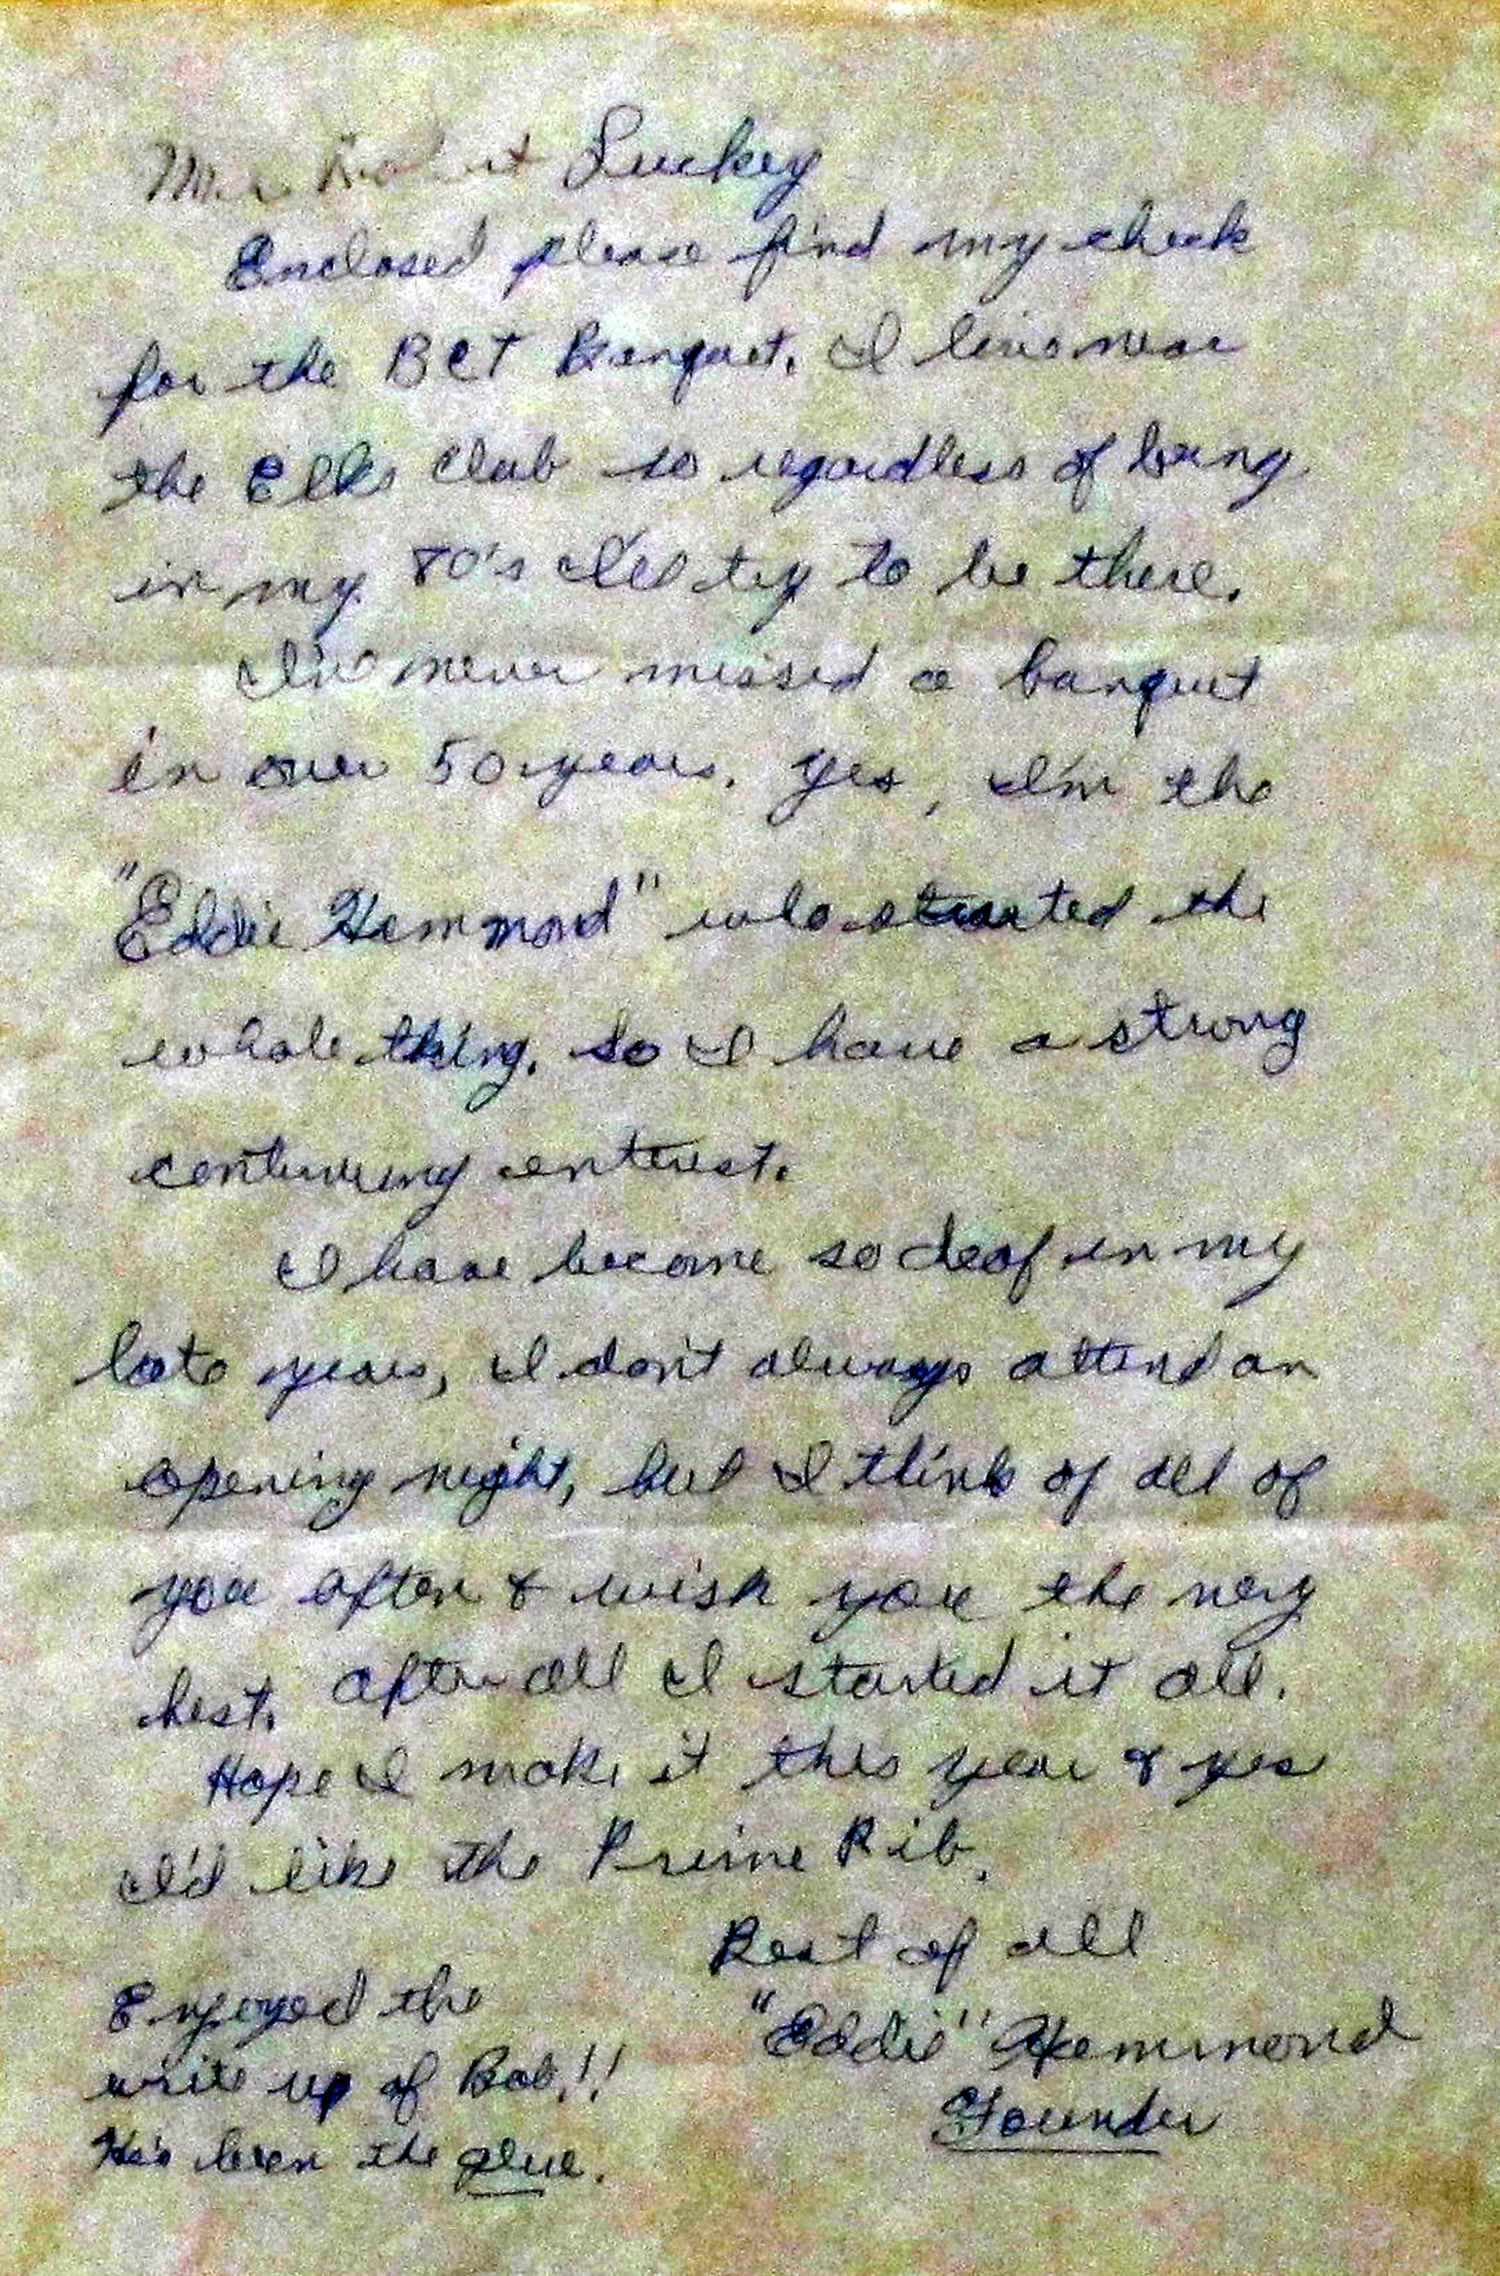 Mrs Robert Luckey
Enclosed please find my check
for the BCT Banquet. I live near
the Elks Club so regardless of being
in my 80's I'll try to be there.
I've never missed a banquet
in over 50 years. Yes, I'm the
"Eddie Hammond" who started the
whole thing. So I have a strong
continuing interest.
I have become so deaf in my
late years, I don't always attend an
opening night, but I think of all of
you often & wish you the very
best. After all I started it all.
Hope I make it this year & yes
I'd like the Prime Rib.
Best of all
"Eddie" Hammond
Founder
Enjoyed the
write up of Bob!!
He's been the glue.